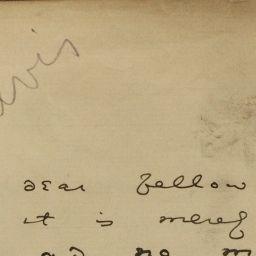 avis
dear fellow
it is merely